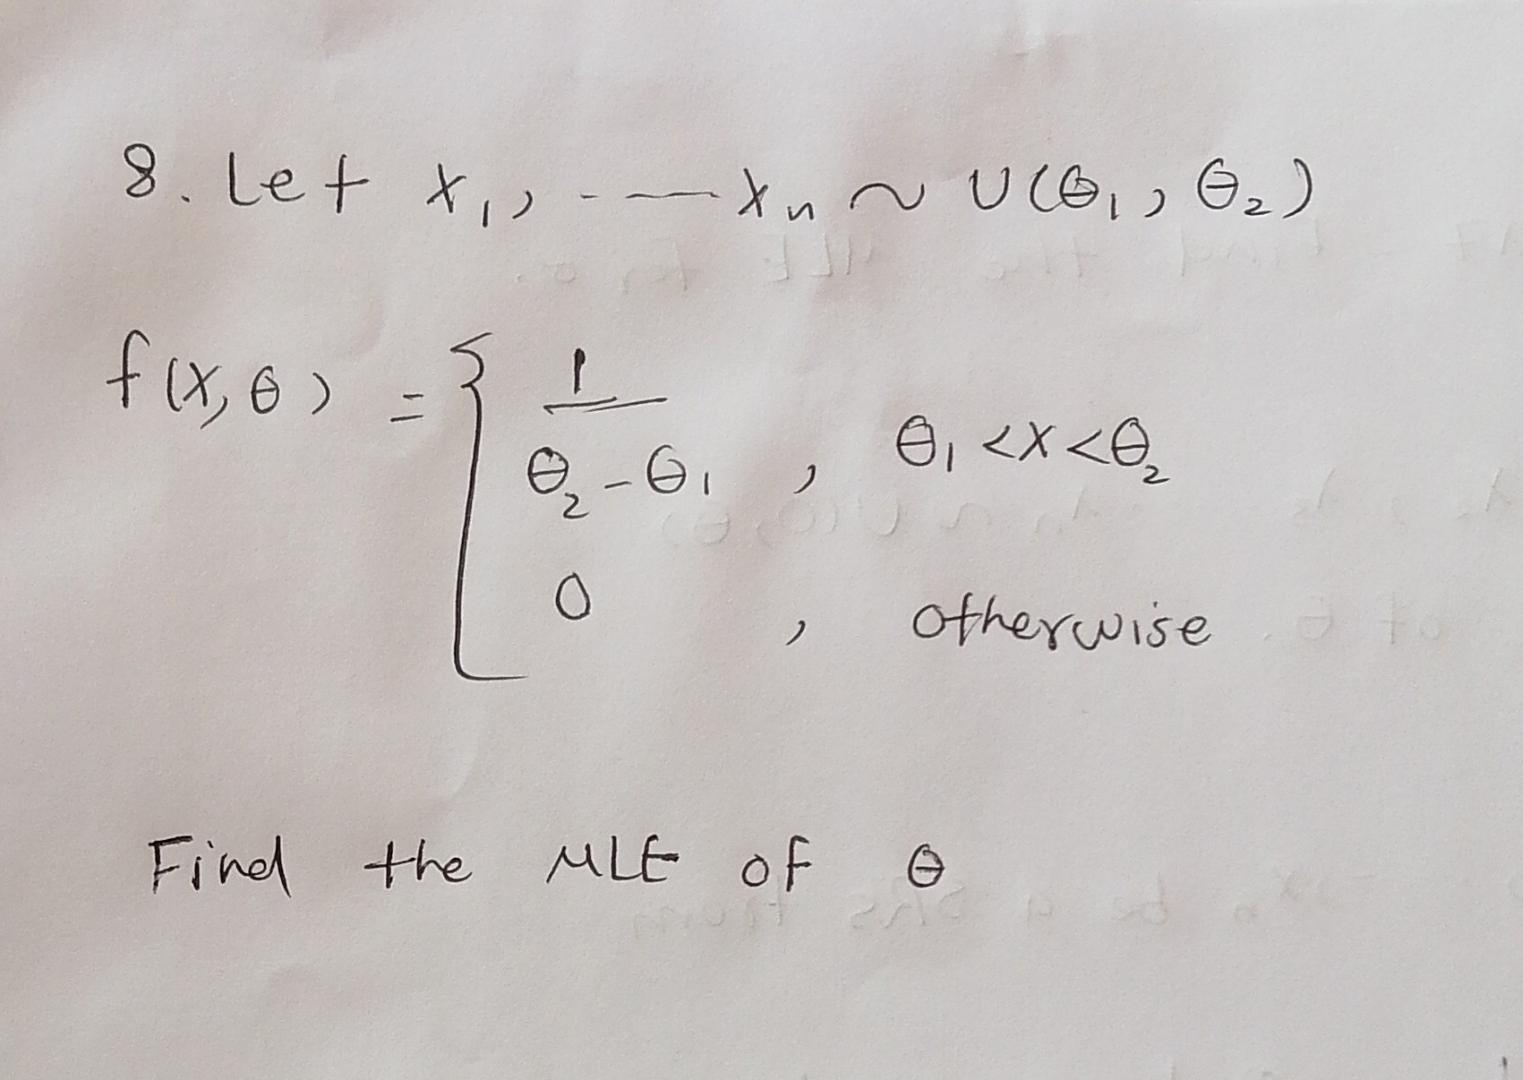 8. Let x₁, ----xₙ ~ U(θ₁, θ₂)
f(x, θ) = { 1/(θ₂-θ₁) , θ₁ <x<θ₂
0 , otherwise
Find the MLE of θ